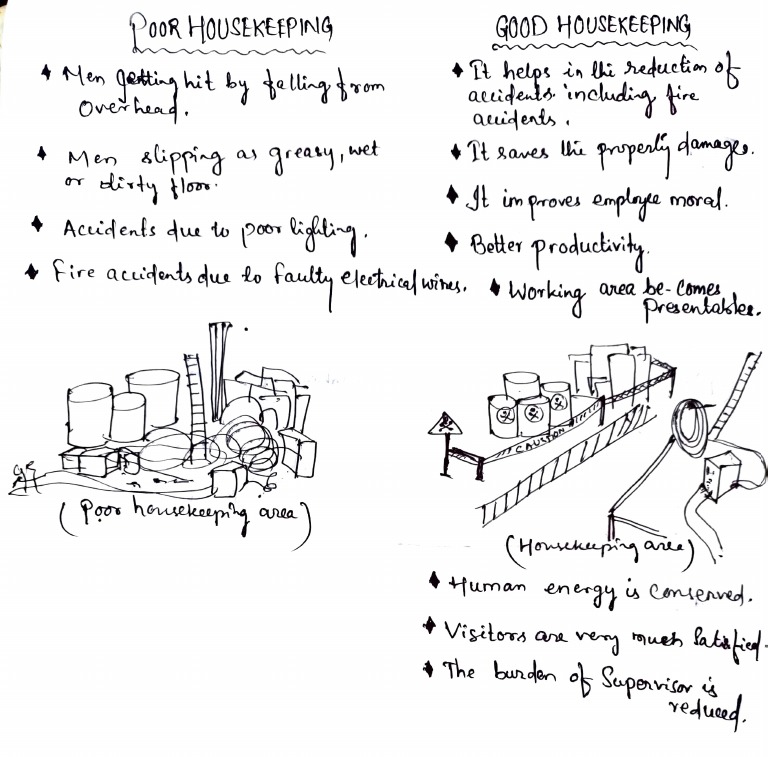 POOR HOUSEKEEPING
♦ Men getting hit by falling from
overhead.
♦ Men slipping as greasy, wet
or dirty floor.
♦ Accidents due to poor lighting.
♦ Fire accidents due to faulty electrical wires.
(Poor housekeeping area)
GOOD HOUSEKEEPING
♦ It helps in the reduction of
accidents including fire
accidents.
♦ It saves the property damages.
♦ It improves employee moral.
♦ Better productivity.
♦ Working area be-comes
presentables.
CAUSTION
(Housekeeping area)
♦ Human energy is conserved.
♦ Visitors are very much satisfied.
♦ The burden of Supervisor is
reduced.